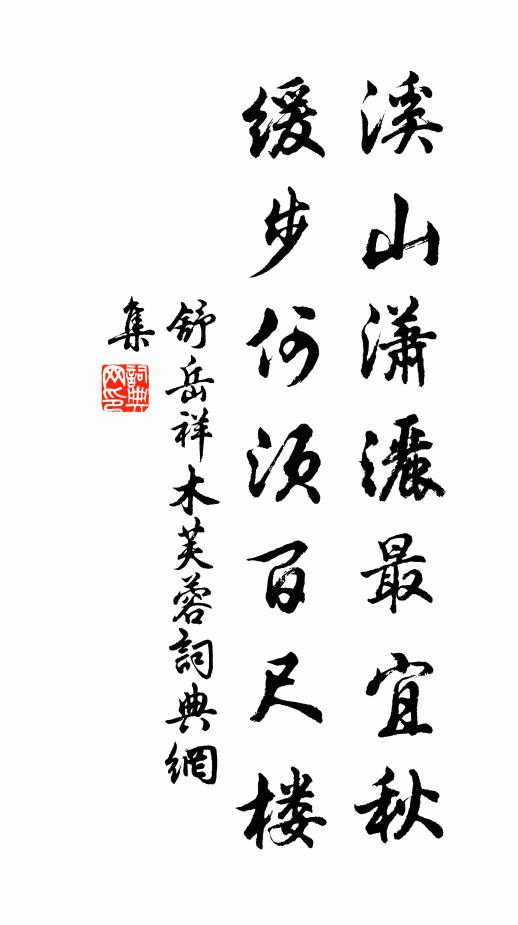 溪山瀟灑最宜秋
缓步何須百尺楼
舒岳祥木芙蓉詞典網
集
詞典
网印